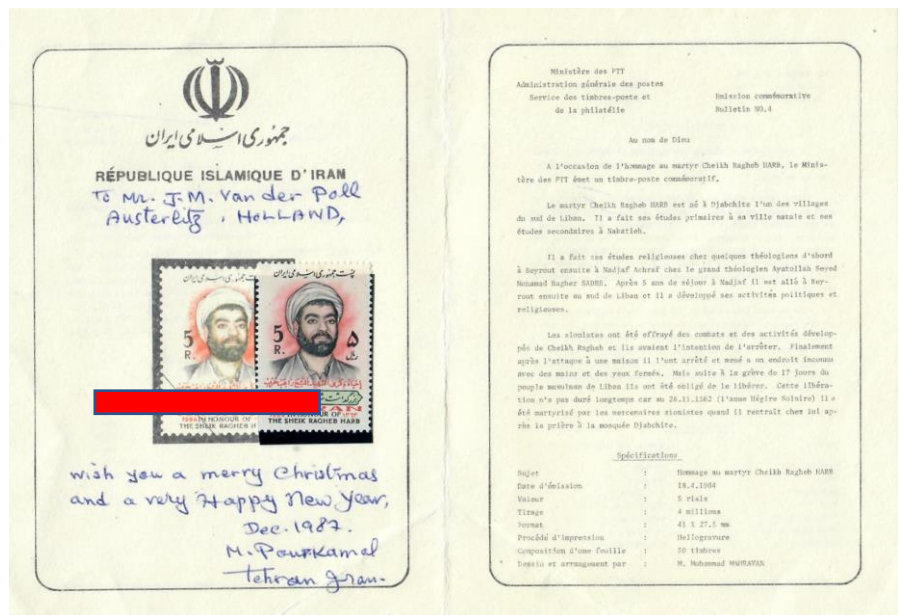 جمهوری اسلامی ایران
RÉPUBLIQUE ISLAMIQUE D'IRAN
To Mr. J.M. Van der Poll
Austerlitz, HOLLAND,
پست جمهوری اسلامی ایران
5
R.
پست جمهوری اسلامی ایران
5
R.
۵
ریال
IRAN
IN HONOUR OF
THE SHEIK RAGHEB H
1984 IN HONOUR OF ۱۳۶۳
THE SHEIK RAGHEB HARB
wish you a merry Christmas
and a very Happy New Year,
Dec. 1987.
M. Pourkamal
Tehran Iran.
Ministère des PTT
Administration générale des postes
Service des timbres-poste et
de la philatélie
Emission commémorative
Bulletin NO.4
Au nom de Dieu
A l'occasion de l'hommage au martyr Cheikh Ragheb HARB, le Minis-
tère des PTT émet un timbre-poste commémoratif.
Le martyr Cheikh Ragheb HARB est né à Djabchite l'un des villages
du sud de Liban. Il a fait ses études primaires à sa ville natale et ses
études secondaires à Nabatieh.
Il a fait ses études religieuses chez quelques théologiens d'abord
à Beyrout ensuite à Nadjaf Achraf chez le grand théologien Ayatollah Seyed
Mohamad Bagher SADRE. Après 5 ans de séjour à Nadjaf il est allé à Bey-
rout ensuite au sud de Liban et il a développé ses activités politiques et
religieuses.
Les sionistes ont été effrayé des combats et des activités dévelop-
pés de Cheikh Ragheb et ils avaient l'intention de l'arrêter. Finalement
après l'attaque à une maison il l'ont arrêté et mené a un endroit inconnu
avec des mains et des yeux fermés. Mais suite à la grève de 17 jours du
peuple musulman de Liban ils ont été obligé de le libérer. Cette libéra-
tion n'a pas duré longtemps car au 28.11.1362 (l'anné Hégire Solaire) il a
été martyrisé par les mercenaires sionistes quand il rentrait chez lui ap-
rès la prière à la mosquée Djabchite.
Spécifications
Sujet : Hommage au martyr Cheikh Ragheb HARB
Date d'émission : 18.4.1984
Valeur : 5 rials
Tirage : 4 millions
Format : 41 X 27.5 mm
Procédé d'impression : Heliogravure
Composition d'une feuille : 50 timbres
Dessin et arrangement par : M. Mohammad MAHRAVAN